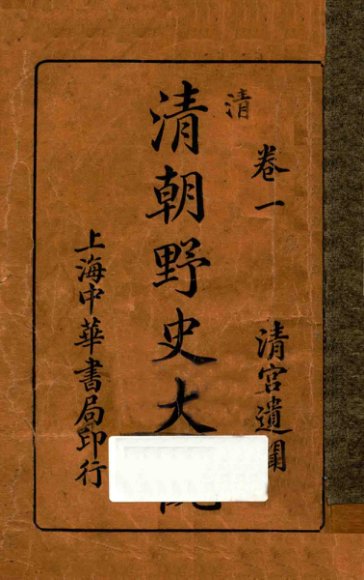 卷一
清宮遺聞
清
清朝野史大
上海中華書局印行